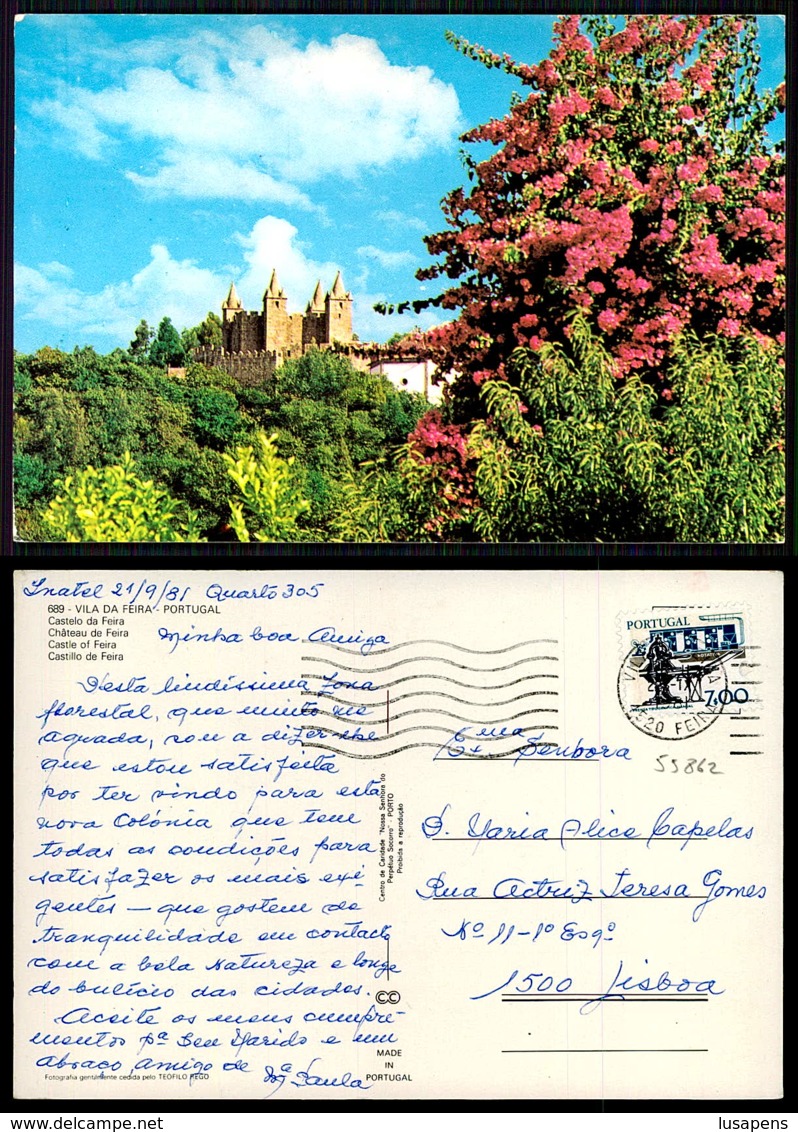 Inatel 21/9/81 Quarto 305
689 - VILA DA FEIRA - PORTUGAL
Castelo da Feira
Château de Feira
Castle of Feira
Castillo de Feira
Minha boa Amiga
Nesta lindíssima zona
florestal, que muito me
agrada, vou a dizer-lhe
que estou satisfeita
por ter vindo para esta
nova Colónia que tem
todas as condições para
satisfazer os mais exi-
gentes — que gostem de
tranquilidade em contacto
com a bela Natureza e longe
do bulício das cidades.
Aceite os meus cumpri-
mentos pª Seu Marido e um
abraço amigo de
Mª Paula
Fotografia gentilmente cedida pelo TEOFILO REGO
Centro de Caridade "Nossa Senhora do
Perpétuo Socorro" - PORTO
Proibida a reprodução
CC
MADE
IN
PORTUGAL
PORTUGAL
7,00
4520 FEIRA
55862
Exma Senhora
D. Maria Alice Capelas
Rua Actriz Teresa Gomes
Nº 11-1º Esqº
1500 Lisboa
lusapens